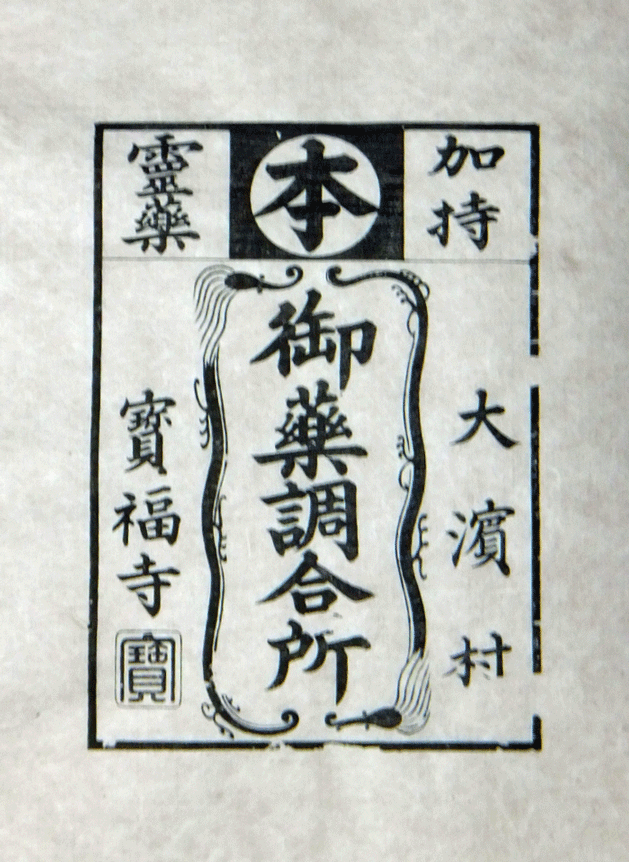 加持
本
靈藥
大濱村
御藥調合所
寳福寺
寳